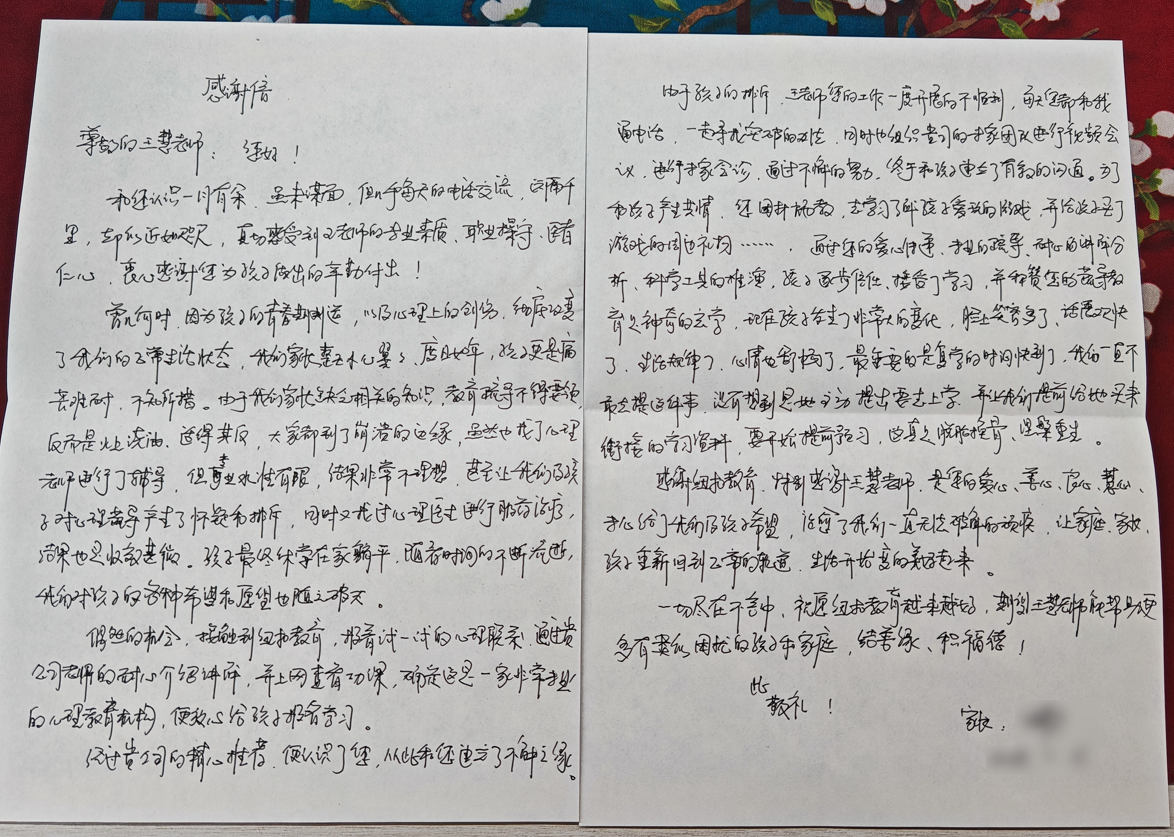 感谢信
尊敬的王慧老师：您好！
和您认识一月有余，虽未谋面，但几乎每天的电话交流，远隔千
里，却似近如咫尺，真切感受到王老师的专业素质、职业操守、医者
仁心，衷心感谢您为孩子康出的辛勤付出！
曾几何时，因为孩子的青春期叛逆，以及心理上的创伤，彻底改变
了我们的正常生活状态，我们家长整天小心翼翼，度日如年，孩子更是痛
苦难耐，不知所措。由于我们家长缺乏相关的知识，教育疏导不得要领，
反而是火上浇油，适得其反，大家都到了崩溃的边缘，虽然也找了心理
老师进行了辅导，但专业水准有限，结果非常不理想，甚至让我们及孩
子对心理辅导产生了怀疑和排斥，同时又找过心理医生进行服药治疗，
结果也是收效甚微。孩子最终休学在家躺平，随着时间的不断流逝，
我们对孩子的各种希望和愿望也随之破灭。
偶然的机会，接触到纽扣教育，抱着试一试的心理联系，通过贵
公司老师的耐心介绍讲解，并上网查看功课，确定这是一家非常专业
的心理教育机构，便放心给孩子报名学习。
经过贵公司的精心推荐，便认识了您，从此和您建立了不解之缘。
由于孩子的排斥，王老师您的工作一度开展的不顺利，每天您都和我
通电话，一起寻找突破的方法，同时也组织贵司的专家团队进行视频会
议，进行专家会诊，通过不懈的努力，终于和孩子建立了有效的沟通。为了
和孩子产生共情，您因材施教，去学习了解孩子喜欢的游戏，并给孩子买了
游戏的周边礼物……，通过您的爱心传递、专业的疏导、耐心的讲解分
析、科学工具的推演，孩子逐步信任、接受了学习，并称赞您的辅导教
育是神奇的玄学，现在孩子发生了非常大的变化，脸上笑容多了，话语欢快
了，生活规律了，心情也舒畅了，最重要的是复学的时间快到了，我们一直不
敢去提这件事，没有想到是她主动提出要去上学，并让我们提前给她买来
衔接的学习资料，要开始提前预习，这真是脱胎换骨、涅槃重生。
感谢纽扣教育，特别感谢王慧老师，是您的爱心、善心、良心、慧心、
专心给了我们及孩子希望，治愈了我们一直无法破解的顽疾，让家庭、家人、
孩子重新回到正常的轨道，生活开始变的美好起来。
一切尽在不言中，祝愿纽扣教育越来越好，期望王慧老师能帮助更
多有类似困扰的孩子和家庭，结善缘、积福德！
此
敬礼！
家长：